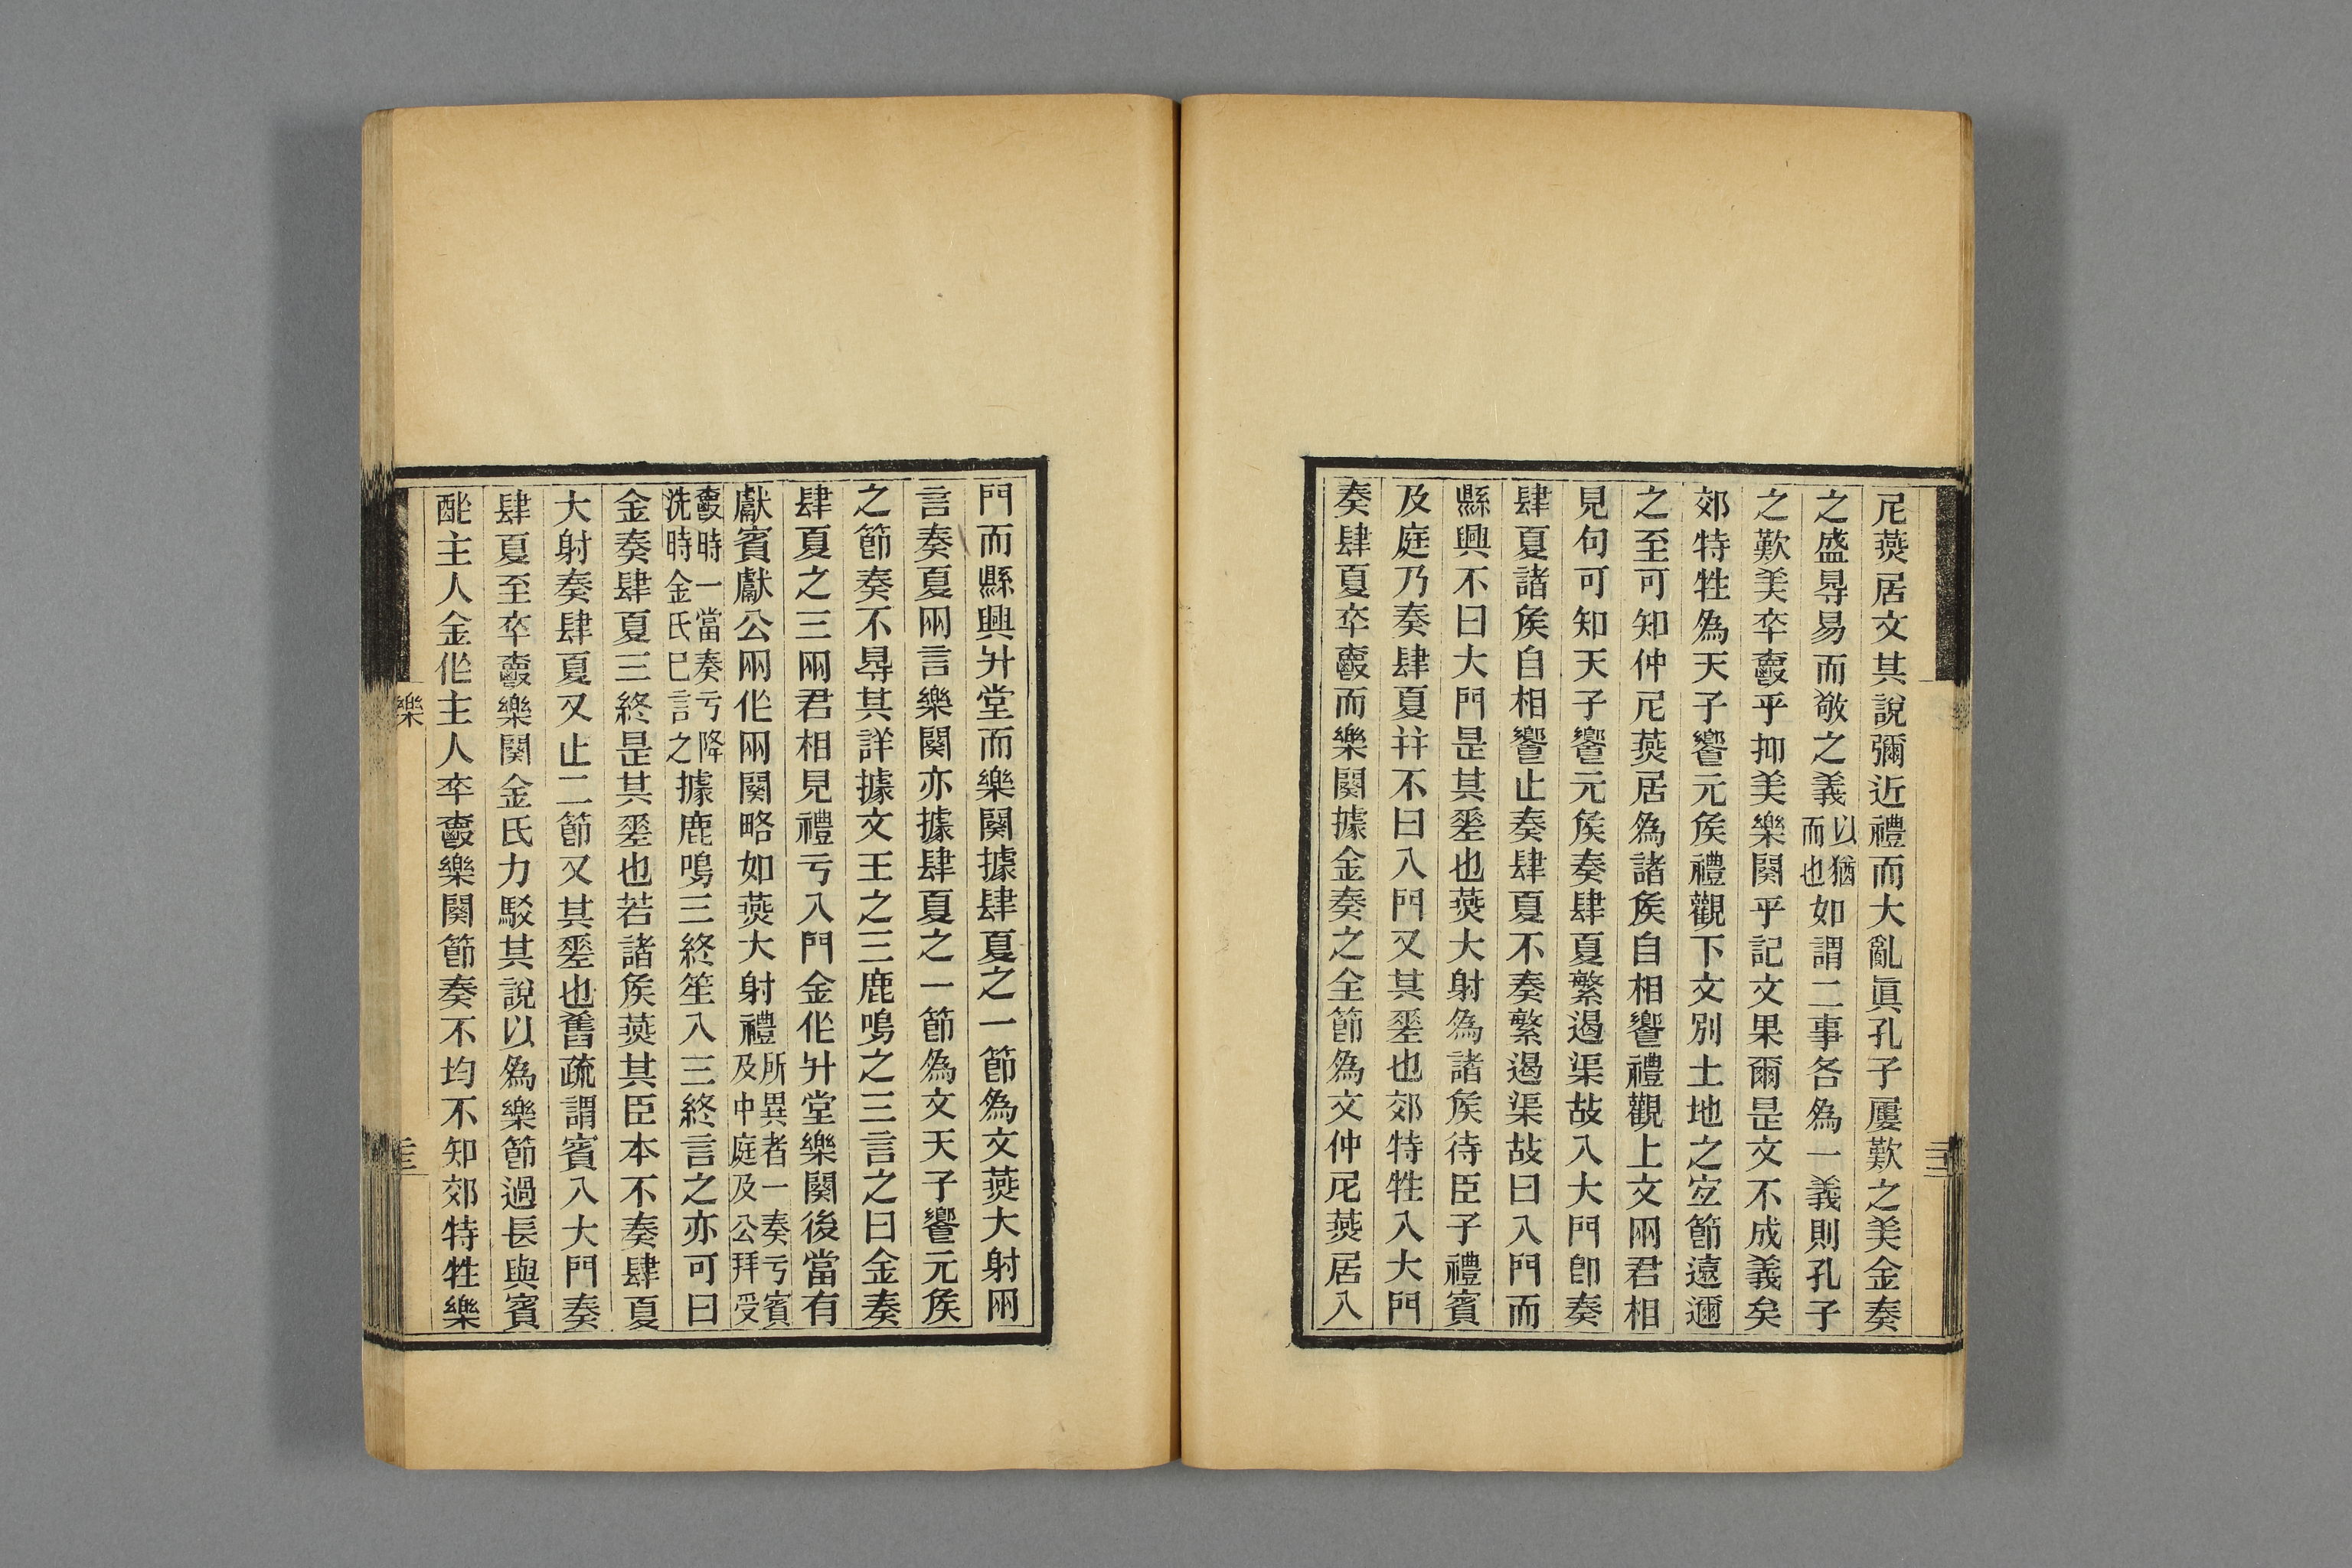 尼燕居文其說彌近禮而大亂眞孔子屢歎之美金奏
之盛㝵易而敬之義以猶而也如謂二事各爲一義則孔子
之歎美卒𣝣乎抑美樂闋乎記文果爾昰文不成義矣
郊特牲爲天子饗元矦禮觀下文別土地之宐節遠邇
之至可知仲尼燕居爲諸矦自相饗禮觀上文兩君相
見句可知天子饗元矦奏肆夏繁遏渠故入大門卽奏
肆夏諸矦自相饗止奏肆夏不奏繁遏渠故曰入門而
縣興不曰大門昰其𢀩也燕大射爲諸矦待臣子禮賓
及庭乃奏肆夏幷不曰入門又其𢀩也郊特牲入大門
奏肆夏卒𣝣而樂闋據金奏之全節爲文仲尼燕居入
門而縣興升堂而樂闋據肆夏之一節爲文燕大射兩
言奏夏兩言樂闋亦據肆夏之一節爲文天子饗元矦
之節奏不㝵其詳據文王之三鹿鳴之三言之曰金奏
肆夏之三兩君相見禮亏入門金作升堂樂闋後當有
獻賓獻公兩作兩闋略如燕大射禮所異者一奏亏賓及中庭及公拜受
𣝣時一當奏亏降洗時金氏已言之據鹿鳴三終笙入三終言之亦可曰
金奏肆夏三終昰其𢀩也若諸矦燕其臣本不奏肆夏
大射奏肆夏又止二節又其𢀩也舊疏謂賓入大門奏
肆夏至卒𣝣樂闋金氏力駁其說以爲樂節過長與賓
酢主人金作主人卒𣝣樂闋節奏不均不知郊特牲樂
樂